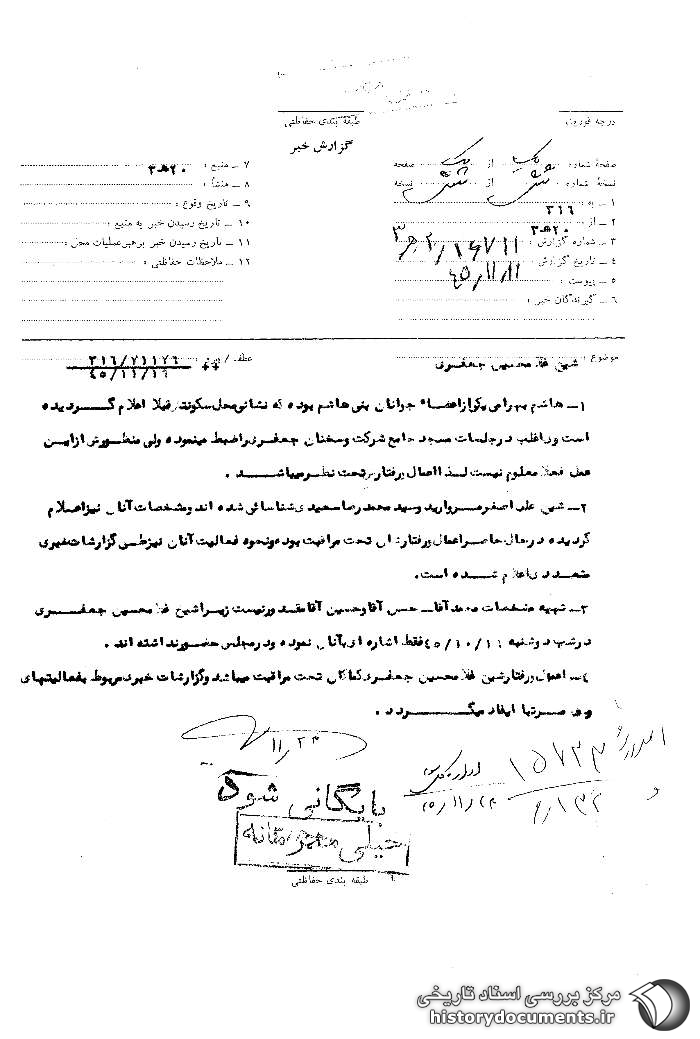 درجه فوریت
طبقه بندی حفاظتی
گزارش خبر
صفحهٔ شماره یک از یک صفحه
نسخهٔ شماره شش از شش نسخه
۱ـ به ۳۱۶
۲ـ از ۲۰ هـ ۳
۳ـ شماره گزارش
۴ـ تاریخ گزارش ۴۵/۱۱/۱۱
۵ـ پیوست :
۶ـ گیرندگان خبر :
۷ـ منبع : ۲۰ هـ ۳
۸ـ منشأ :
۹ـ تاریخ وقوع :
۱۰ـ تاریخ رسیدن خبر به منبع :
۱۱ـ تاریخ رسیدن خبر برهبر عملیات محل :
۱۲ـ ملاحظات حفاظتی :
موضوع : شیخ غلامحسین جعفری
عطف / پیرو :
۱ـ هاشم بهرامی یکی از اعضاء جوانان بنی هاشم بوده که نشانی محل سکونتش قبلا اعلام گـــردیده
است وی اغلب در جلسات مسجد جامع شرکت و سخنان جعفری را ضبط مینموده ولی منظورش از این
عمل فعلا معلوم نیست لـذا اعمال و رفتارش تحت نظر میباشـــد .
۲ـ شیخ علی اصغر مــروارید و سید محمد رضا سعیدی شناسائی شده اند و مشخصات آنان نیز اعـلام
گردیده در حال حاضر اعمال و رفتارشان تحت مراقبت بوده و نحوه فعالیت آنان نیز طی گزارشات خبری
متعددی اعلام شــده است.
۳ـ تهیه مشخصات محمد آقاـ حسن آقا و حسین آقا مقدور نیست زیرا شیخ غلامحسین جعفـــری
در شب دوشنبه فقط اشاره ای بآنان نموده و در مجلس حضور نداشته اند .
۴ـ اعمال و رفتار شیخ غلامحسین جعفری کماکان تحت مراقبت میباشد و گزارشات خبری مربوط بفعالیتهای
وی مــرتبا ایفاد میگــــردد .
۱۱/۲۳
۱۵۷۳۳
۴۵/۱۱/۲۳
بایگانی شود
خیلی محرمانه
طبقه بندی حفاظتی
مرکز بررسی اسناد تاریخی
historydocuments.ir